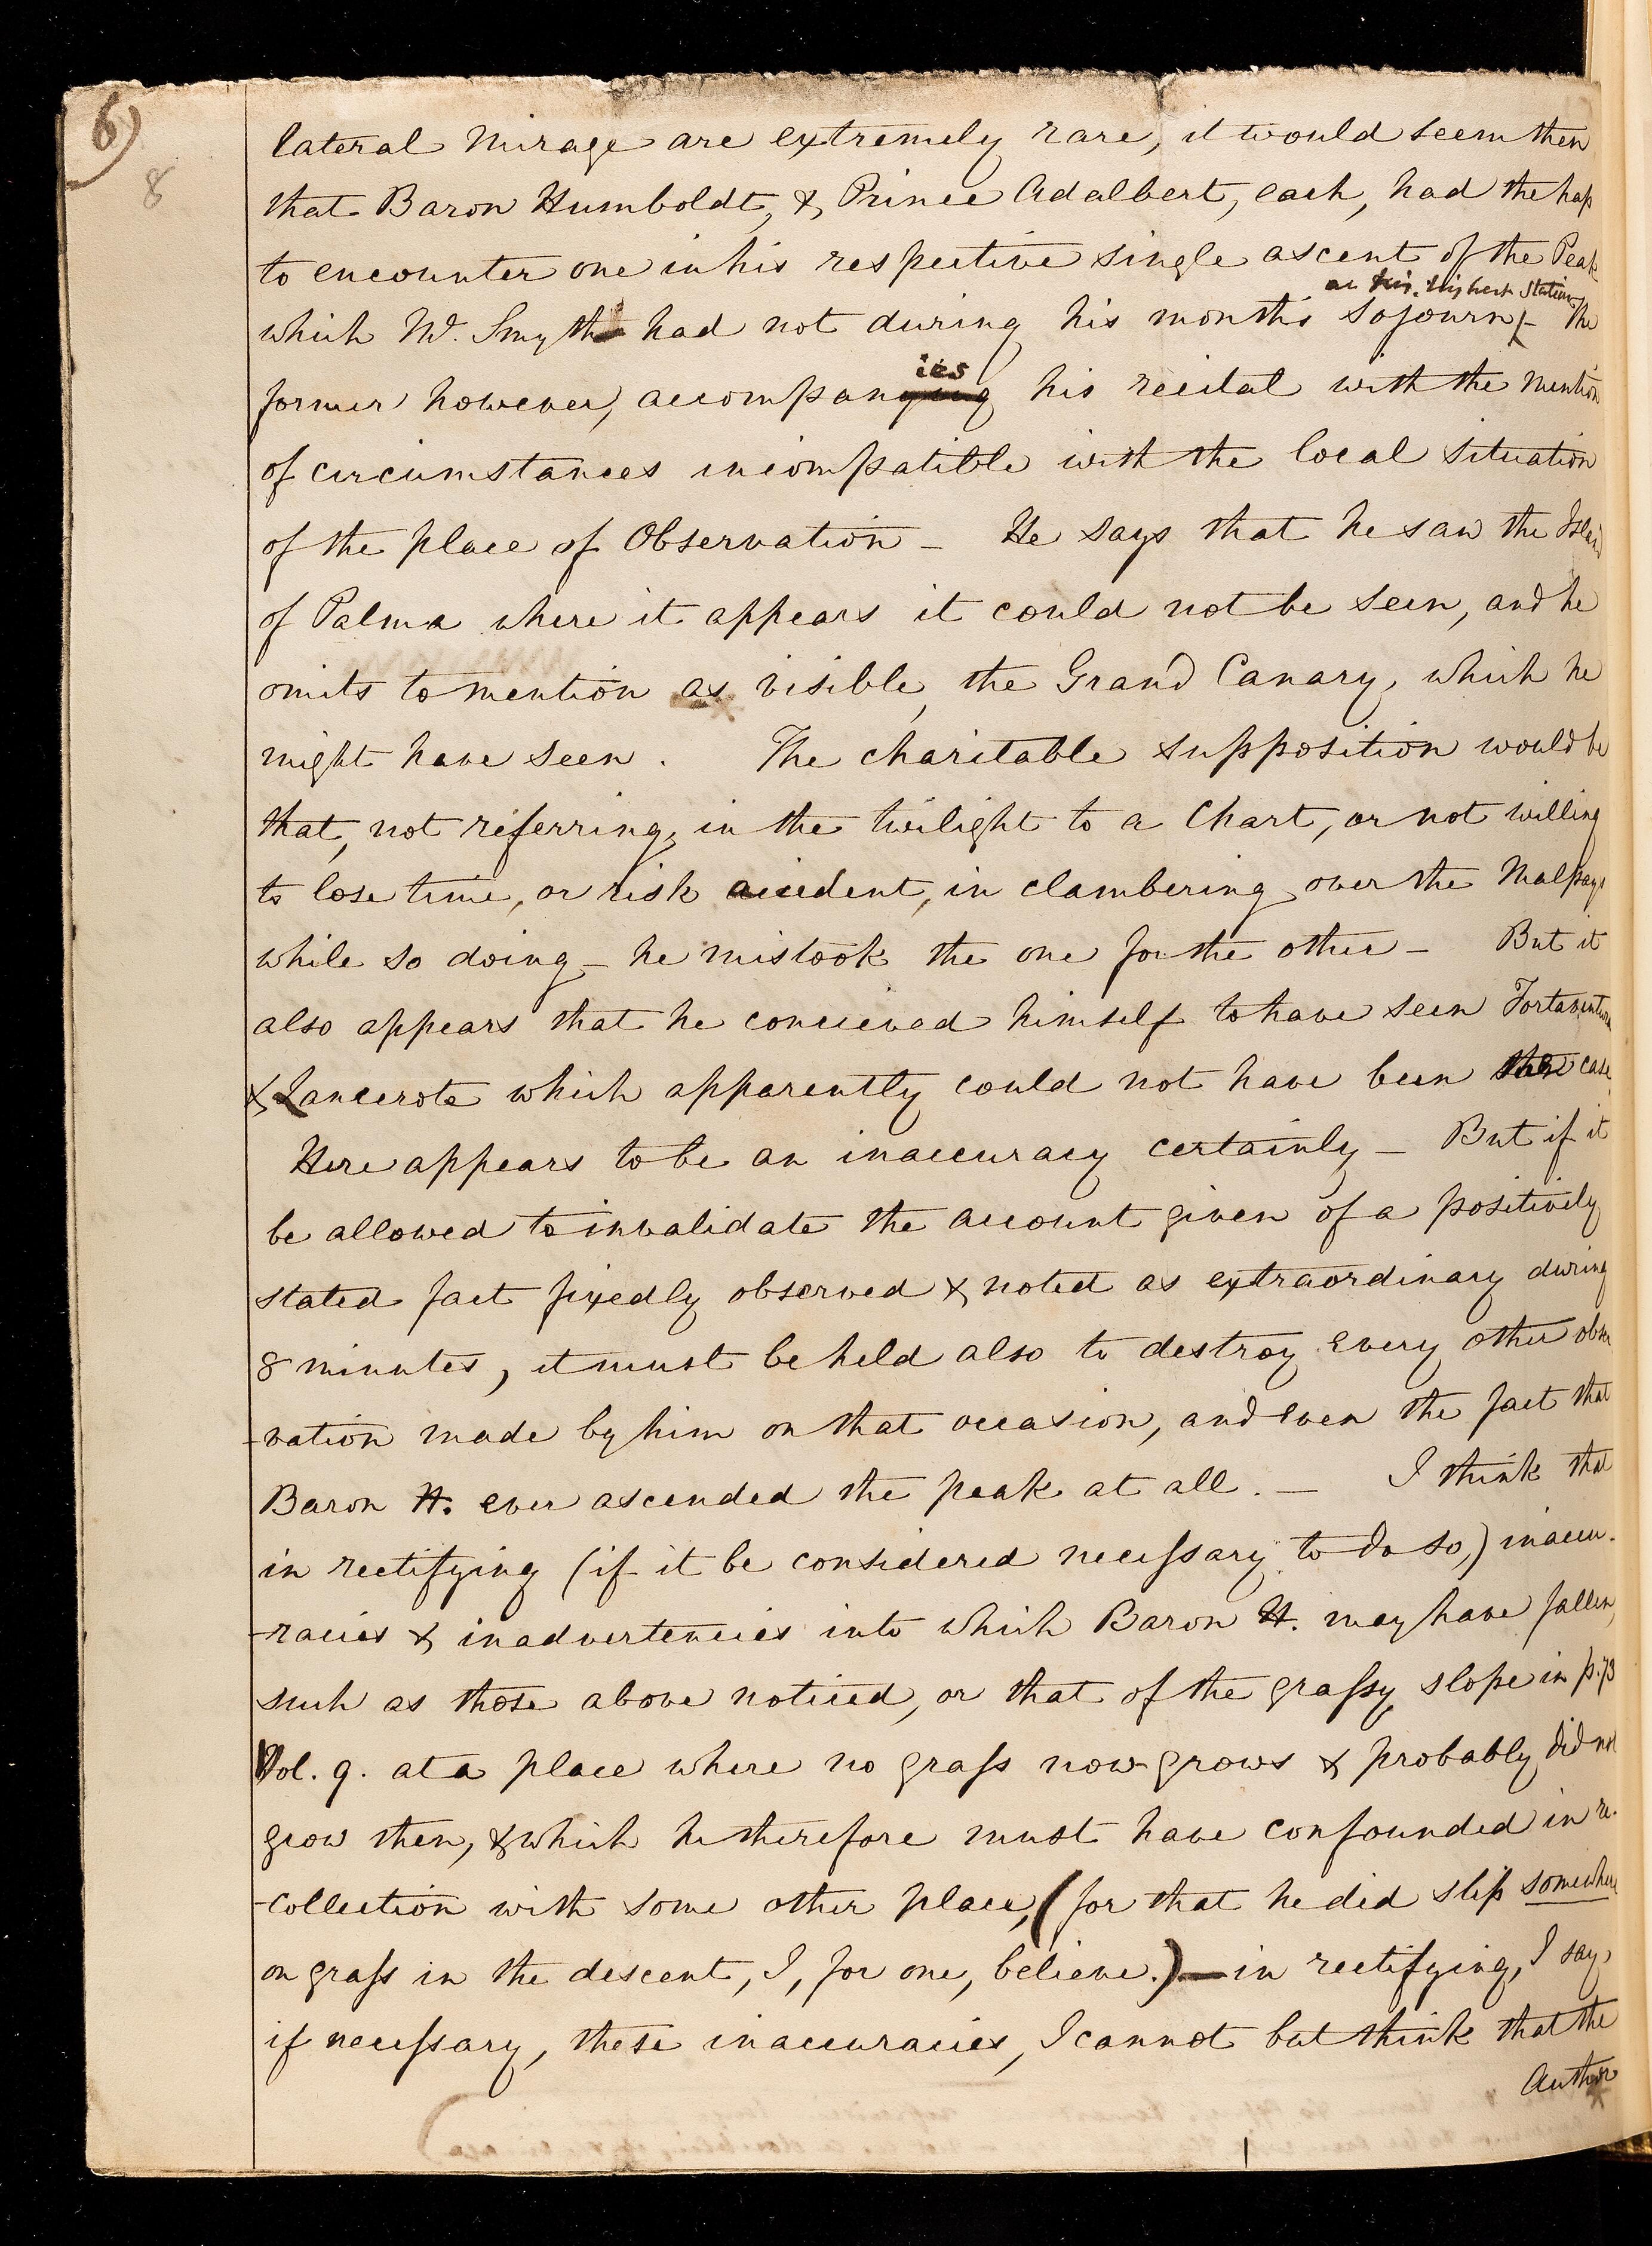 6)
8
lateral Mirage are extremely rare, it would seem then
that Baron Humboldt, & Prince Adalbert, each, had the hap
to encounter one in his respective single ascent of the Peak
at his highest Station
which Mr. Smyth had not during his month's sojourn - The
ies
former however, accompanying his recital with the mention
of circumstances incompatible with the local situation
of the place of Observation - He says that he saw the Island
of Palma where it appears it could not be seen, and he
omits to mention as visible, the Grand Canary, which he
might have seen. The charitable supposition would be
that, not referring, in the twilight to a Chart, or not willing
to lose time, or risk accident, in clambering over the Malpays
while so doing - he mistook the one for the other - But it
also appears that he concieved himself to have seen Fortaventura
& Lancerote which apparently could not have been the case.
Here appears to be an inaccuracy certainly - But if it
be allowed to invalidate the account given of a positively
stated fact fixedly observed & noted as extraordinary during
8 minutes, it must be held also to destroy every other obser
-vation made by him on that occasion, and even the fact that
Baron H. ever ascended the peak at all. - I think that
in rectifying (if it be considered necessary to do so,) inaccu-
-racies & inadvertencies into which Baron H. may have fallen,
such as those above noticed, or that of the grassy slope in p. 73
Vol. 9. at a place where no grass now grows & probably did not
grow then, & which he therefore must have confounded in re-
-collection with some other place, (for that he did slip somewhere
on grass in the descent, I, for one, believe.) - in rectifying, I say,
if necessary, these inaccuracies, I cannot but think that the
Author